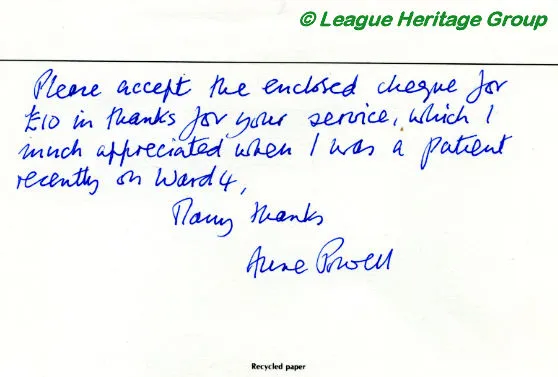 © League Heritage Group
Please accept the enclosed cheque for
£10 in thanks for your service, which I
much appreciated when I was a patient
recently on Ward 4,
Many thanks
Anne Powell
Recycled paper